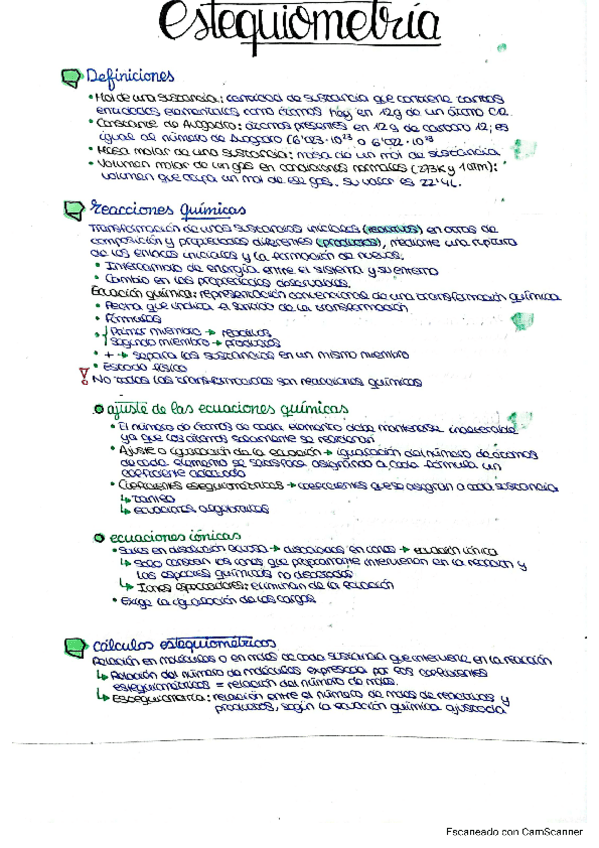 Estequiometría
Definiciones
• Mol de una sustancia: cantidad de sustancia que contiene tantas
entidades elementales como átomos hay en 12g de un átomo C12.
• Constante de Avogadro: átomos presentes en 12g de carbono 12; es
igual al número de Avogadro (6'023·10²³ o 6'022·10²³
• Masa molar de una sustancia: masa de un mol de sustancia
• Volumen molar de un gas en condiciones normales (273K y 1atm):
volumen que ocupa un mol de ese gas. Su valor es 22'4L.
reacciones químicas
Transformación de unas sustancias iniciales (reactivos) en otras de
composición y propiedades diferentes (productos), mediante una ruptura
de los enlaces iniciales y la formación de nuevos.
• Intercambio de energía entre el sistema y su entorno
• Cambio en las propiedades observables.
Ecuación química: representación convencional de una transformación química
• Flecha que indica el sentido de la transformación
• Fórmulas
• Primer miembro → reactivos
Segundo miembro → productos
• + → separa las sustancias en un mismo miembro
• Estado físico
! No todas las transformaciones son reacciones químicas
ajuste de las ecuaciones químicas
• El número de átomos de cada elemento debe mantenerse inalterable
ya que los átomos solamente se reaccionan
• Ajuste o igualación de la ecuación → igualación del número de átomos
de cada elemento se satisface asignando a cada fórmula un
coeficiente adecuado
• Coeficientes estequiométricos → coeficientes que se asignan a cada sustancia
↳ tanteo
↳ ecuaciones algebraicas
ecuaciones iónicas
• Sales en disolución acuosa → disociadas en iones → ecuación iónica
↳ Solo constan los iones que propiamente intervienen en la reacción y
las especies químicas no disociadas
↳ Iones espectadores: eliminan de la ecuación
• Exige la igualación de las cargas.
cálculos estequiométricos
Relación en moléculas o en moles de cada sustancia que interviene en la reacción
↳ Relación del número de moléculas expresada por los coeficientes
estequiométricos = relación del número de moles.
↳ Estequiometría: relación entre el número de moles de reactivos y
productos, según la ecuación química ajustada
Escaneado con CamScanner